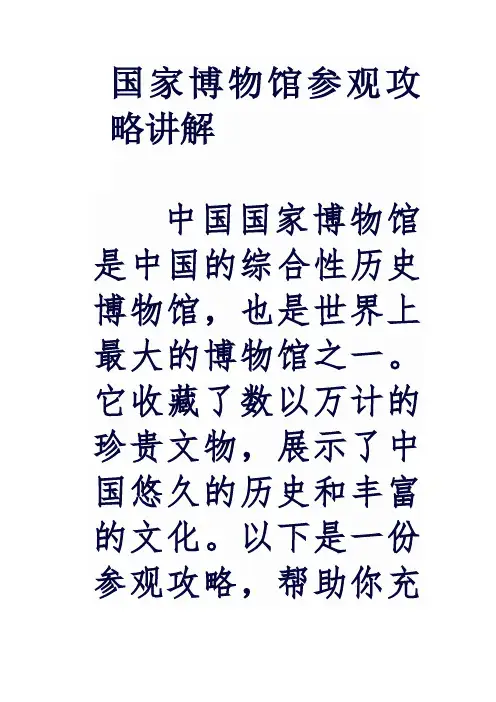 国家博物馆参观攻
略讲解
中国国家博物馆
是中国的综合性历史
博物馆，也是世界上
最大的博物馆之一。
它收藏了数以万计的
珍贵文物，展示了中
国悠久的历史和丰富
的文化。以下是一份
参观攻略，帮助你充